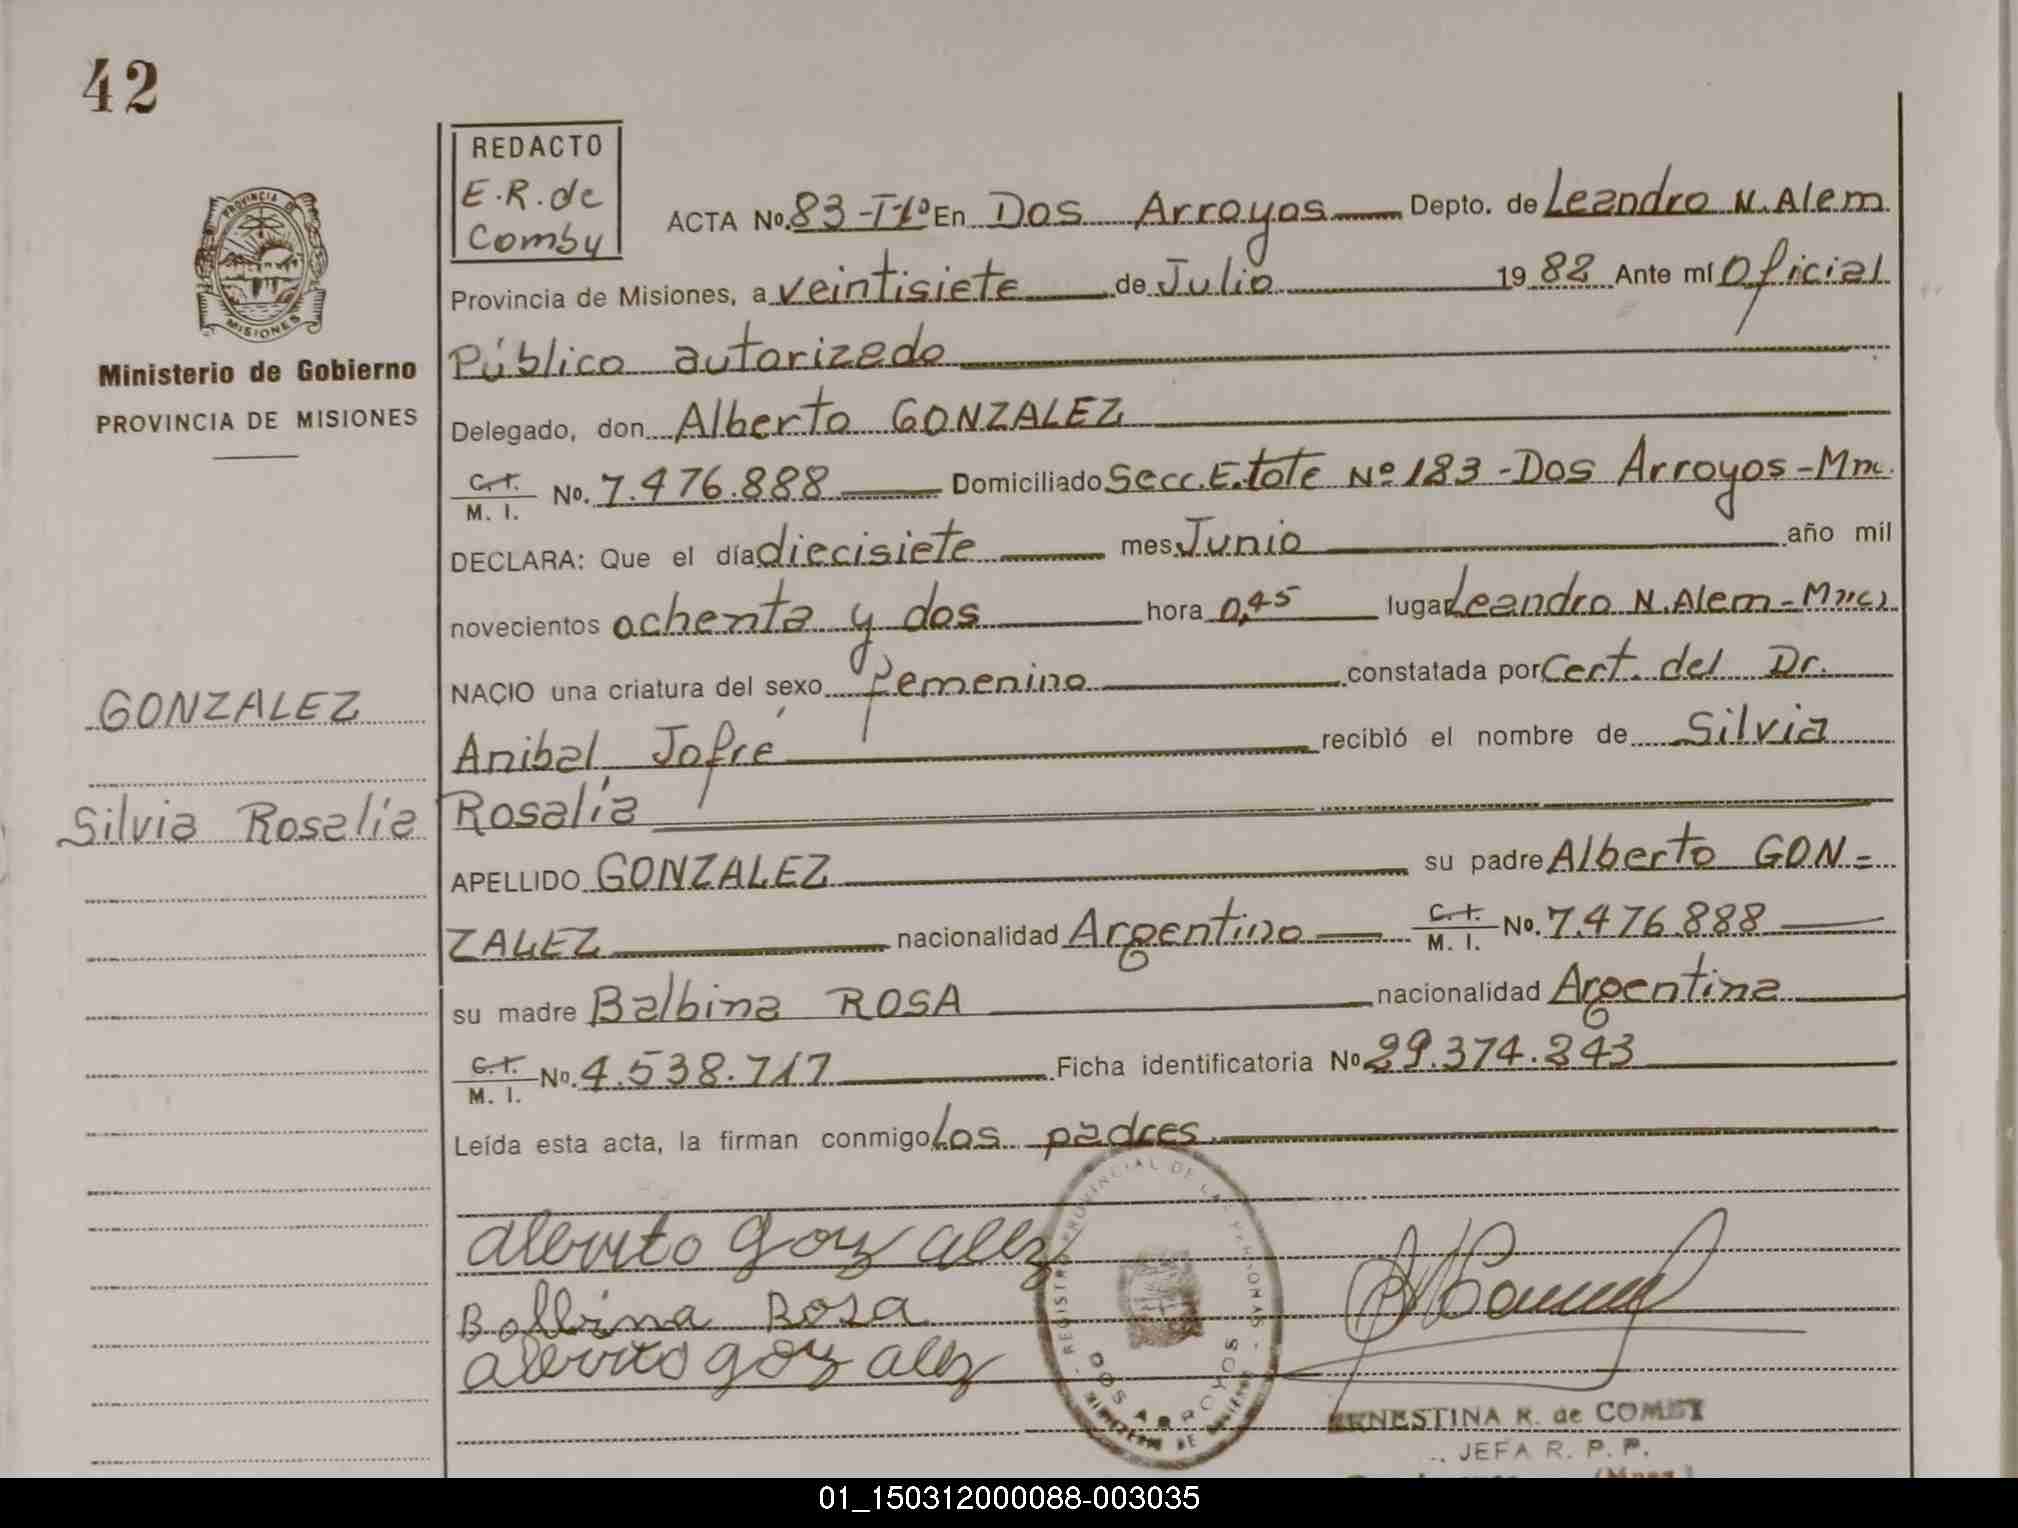 42
REDACTO
E.R. de
Comby
PROVINCIA DE
MISIONES
Ministerio de Gobierno
PROVINCIA DE MISIONES
ACTA No. 83-Tº1º En Dos Arroyos Depto. de Leandro N. Alem
Provincia de Misiones, a veintisiete de Julio 1982 Ante mí Oficial
Público autorizado
Delegado, don Alberto GONZALEZ
C. I. M. I. No. 7.476.888 Domiciliado Secc. E. lote Nº 183 - Dos Arroyos - Mnes.
DECLARA: Que el día diecisiete mes Junio año mil
novecientos ochenta y dos hora 0,45 lugar Leandro N. Alem - Mnes)
NACIO una criatura del sexo femenino constatada por Cert. del Dr.
Anibal Jofré recibió el nombre de Silvia
Rosalía
GONZALEZ
Silvia Rosalía
APELLIDO GONZALEZ su padre Alberto GON=
ZALEZ nacionalidad Argentino C. I. M. I. No. 7.476.888
su madre Balbina ROSA nacionalidad Argentina
C. I. M. I. No. 4.538.717 Ficha identificatoria No 29.374.243
Leída esta acta, la firman conmigo los padres
alberto gonzalez
Balbina Rosa
alberto gonzalez
REGISTRO PROVINCIAL DE LAS PERSONAS
DOS ARROYOS
MINISTERIO DE GOBIERNO
ERNESTINA R. de COMBY
JEFA R. P. P.
01_150312000088-003035